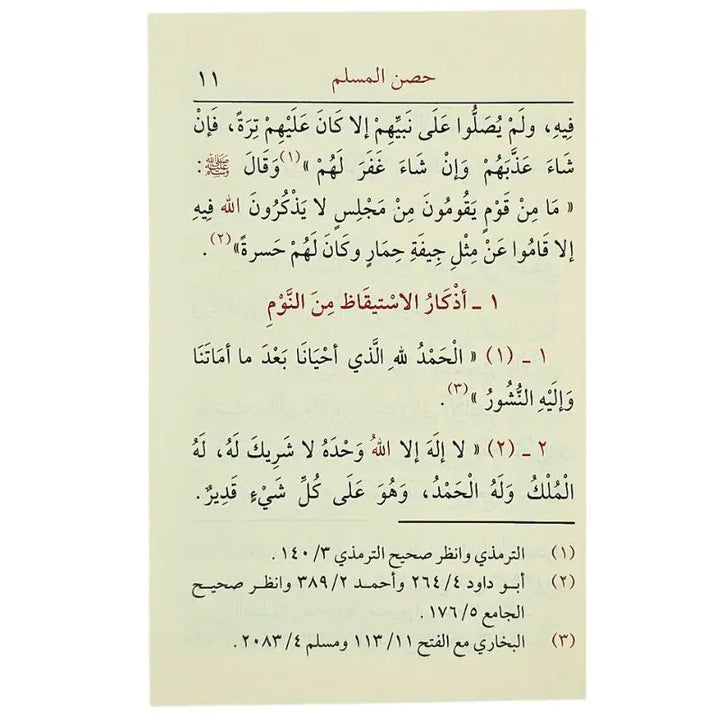 حصن المسلم ١١
فِيهِ، ولَمْ يُصَلُّوا عَلَى نَبِيِّهِمْ إلا كَانَ عَلَيْهِمْ تِرَةً، فَإنْ
شَاءَ عَذَّبَهُمْ وَإنْ شَاءَ غَفَرَ لَهُمْ»(١) وَقَالَ ﷺ :
« مَا مِنْ قَوْمٍ يَقُومُونَ مِنْ مَجْلِسٍ لا يَذْكُرُونَ الله فِيهِ
إلا قَامُوا عَنْ مِثْلِ جِيفَةِ حِمَارٍ وكَانَ لَهُمْ حَسرةً»(٢) .
١ ـ أذْكَارُ الاسْتِيقَاظِ مِنَ النَّوْمِ
١ ـ (١) « الْحَمْدُ للهِ الَّذي أحْيَانَا بَعْدَ ما أمَاتَنَا
وَإلَيْهِ النُّشُورُ »(٣) .
٢ ـ (٢) « لا إلَهَ إلا اللهُ وَحْدَهُ لا شَرِيكَ لَهُ، لَهُ
الْمُلْكُ وَلَهُ الْحَمْدُ، وَهُوَ عَلَى كُلِّ شَيْءٍ قَدِيرٌ.
(١) الترمذي وانظر صحيح الترمذي ٣/ ١٤٠ .
(٢) أبو داود ٤/ ٢٦٤ وأحمد ٢/ ٣٨٩ وانظر صحيح
الجامع ٥/ ١٧٦ .
(٣) البخاري مع الفتح ١١/ ١١٣ ومسلم ٤/ ٢٠٨٣ .